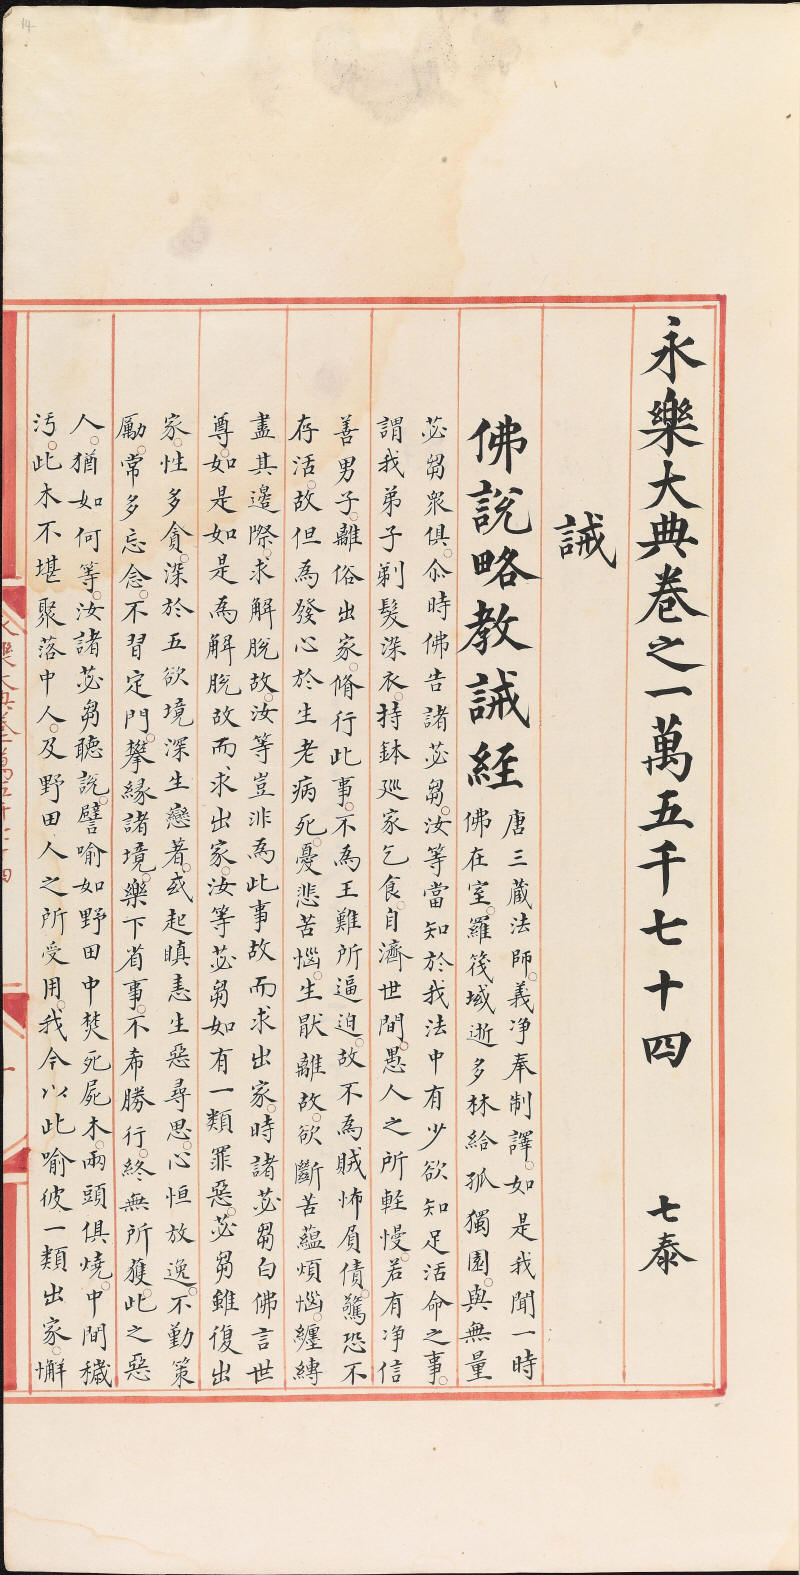 永樂大典卷之一萬五千七十四
七泰
誡
佛說略教誡經
唐三藏法師。義淨奉制譯。如是我聞一時
佛在室。羅筏城逝多林給孤獨園。與無量
苾芻衆俱。尒時佛告諸苾芻。汝等當知於我法中有少欲知足活命之事。
謂我弟子剃髮染衣。持鉢廵家乞食。自濟世間。愚人之所輕慢。若有净信
善男子。離俗出家。脩行此事。不為王難所逼迫。故不為賊怖屓債。驚恐不
存活。故但為發心於生老病死。憂悲苦惱。生猒離故。欲斷苦蘊煩惱。纏縛
盡其邊際。求解脫故。汝等豈非為此事故而求出家。時諸苾芻白佛言世
尊。如是如是為解脫故而求出家。汝等苾芻如有一類罪惡。苾芻雖復出
家。性多貪。深於五欲境深生戀著。或起瞋恚生惡尋思。心恒放逸。不勤策
勵。常多忘念。不習定門。攀緣諸境。樂下省事。不希勝行。終無所獲。此之惡
人。猶如何等。汝諸苾芻聽說。譬喻如野田中焚死屍木。兩頭俱燒。中間穢
汚。此木不堪聚落中人。及野田人之所受用。我今以此喻彼一類出家。懈
永樂大典卷一萬五千七十四
一
14